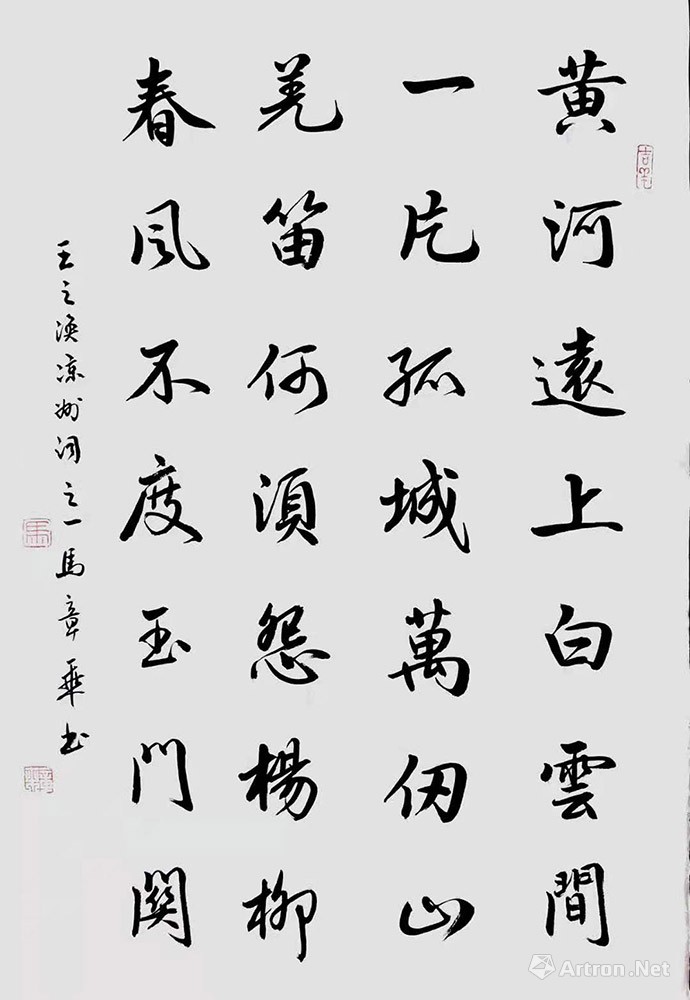 黄河遠上白雲間
一片孤城萬仞山
羌笛何須怨楊柳
春風不度玉門関
王之渙涼州詞之一馬章乘书
Artron.Net